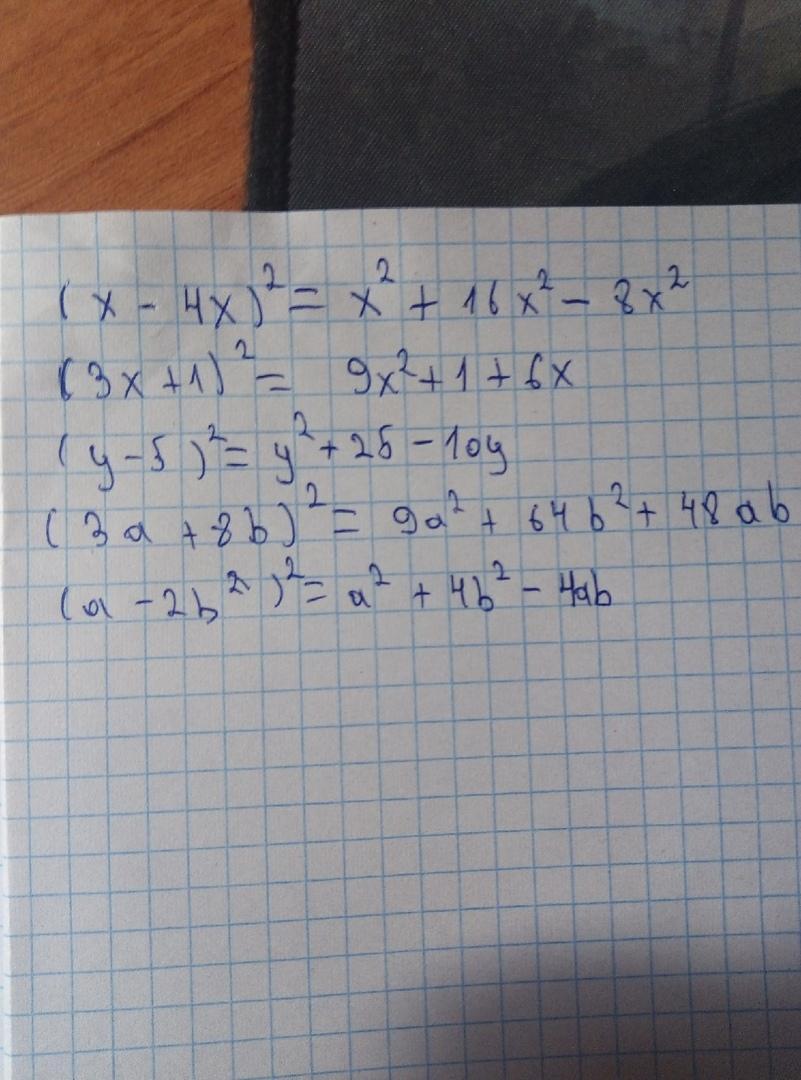 (x - 4x)² = x² + 16x² - 8x²
(3x + 1)² = 9x² + 1 + 6x
(y - 5)² = y² + 25 - 10y
(3a + 8b)² = 9a² + 64b² + 48ab
(a - 2b²)² = a² + 4b² - 4ab